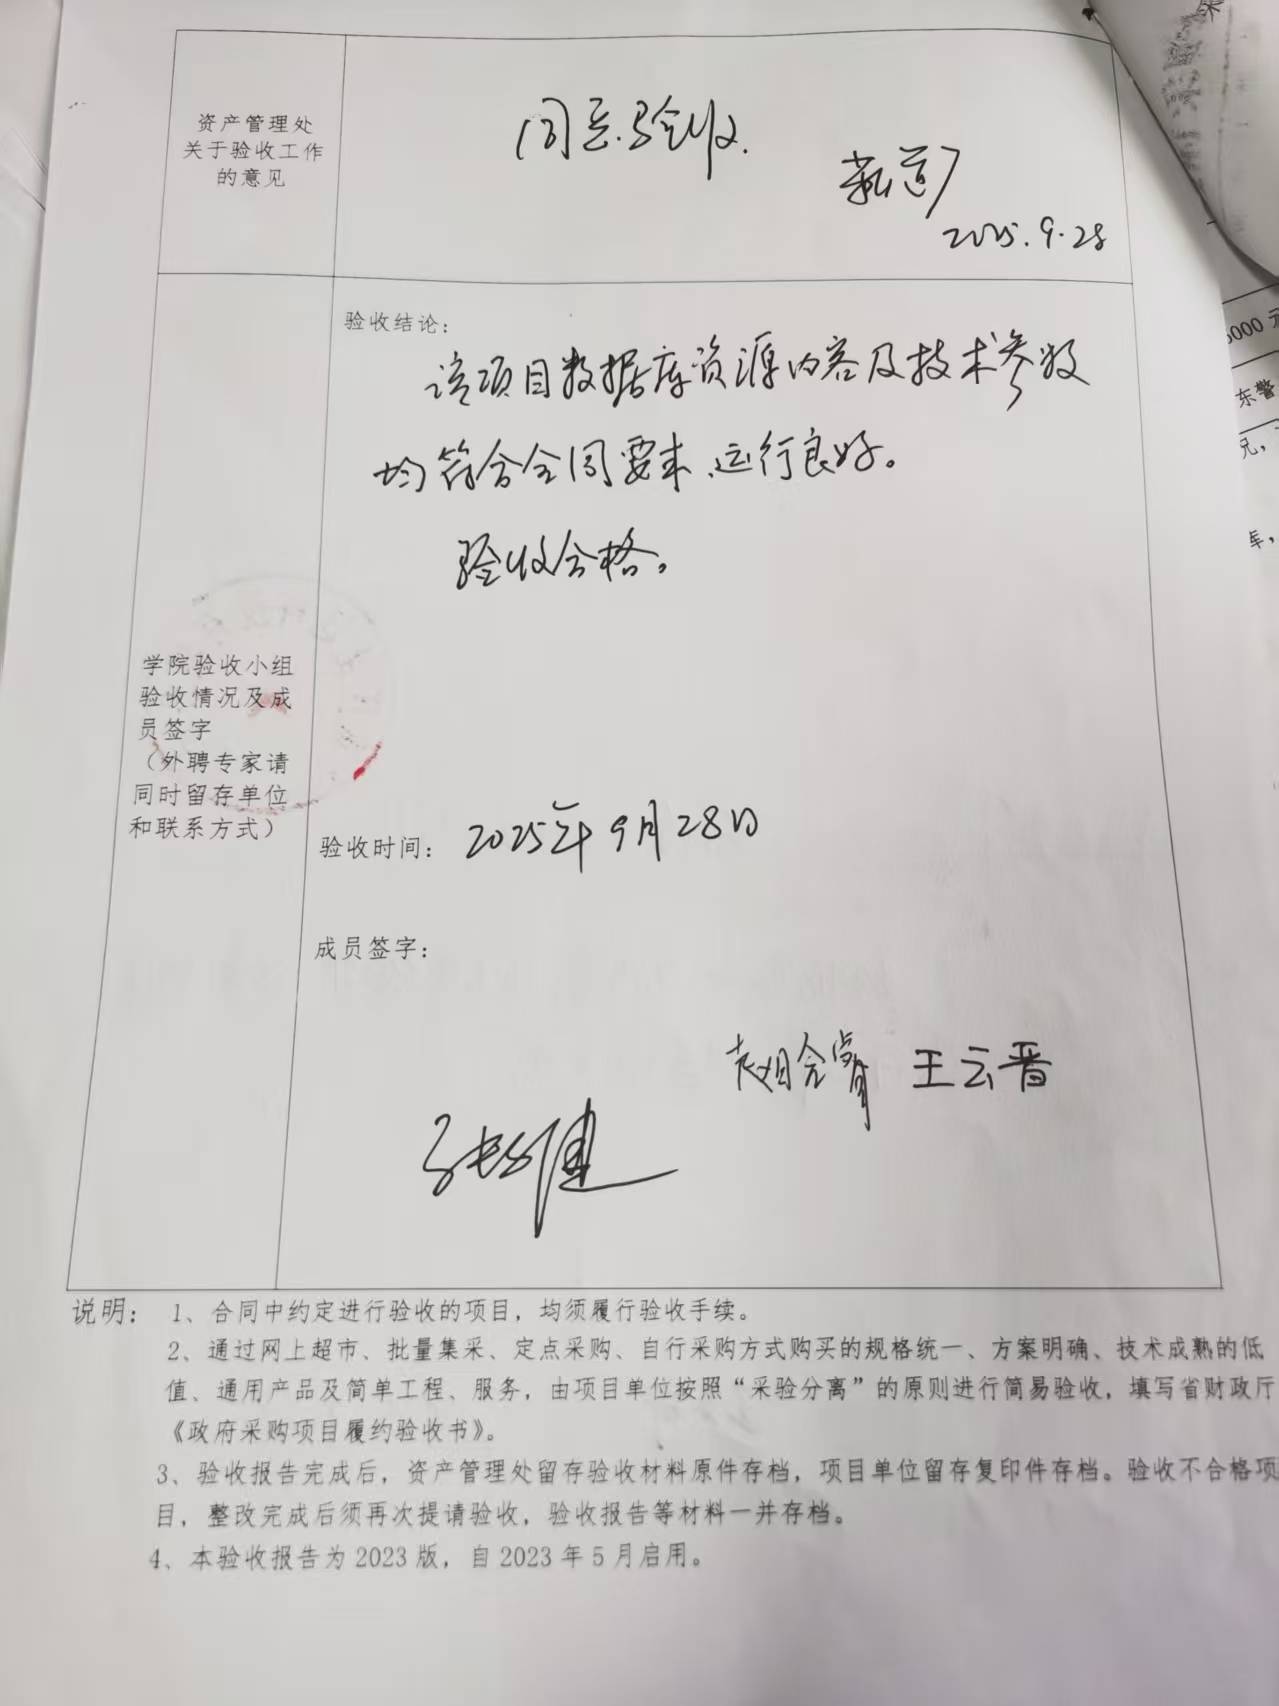 资产管理处
关于验收工作
的意见
同意验收.
2025.9.28
验收结论:
该项目数据库资源内容及技术参数
均符合合同要求、运行良好。
验收合格。
学院验收小组
验收情况及成
员签字
（外聘专家请
同时留存单位
和联系方式）
验收时间: 2025年9月28日
成员签字:
王云晋
张健
说明: 1、合同中约定进行验收的项目，均须履行验收手续。
2、通过网上超市、批量集采、定点采购、自行采购方式购买的规格统一、方案明确、技术成熟的低
值、通用产品及简单工程、服务，由项目单位按照“采验分离”的原则进行简易验收，填写省财政厅
《政府采购项目履约验收书》。
3、验收报告完成后，资产管理处留存验收材料原件存档，项目单位留存复印件存档。验收不合格项
目，整改完成后须再次提请验收，验收报告等材料一并存档。
4、本验收报告为2023版，自2023年5月启用。
000元
东警